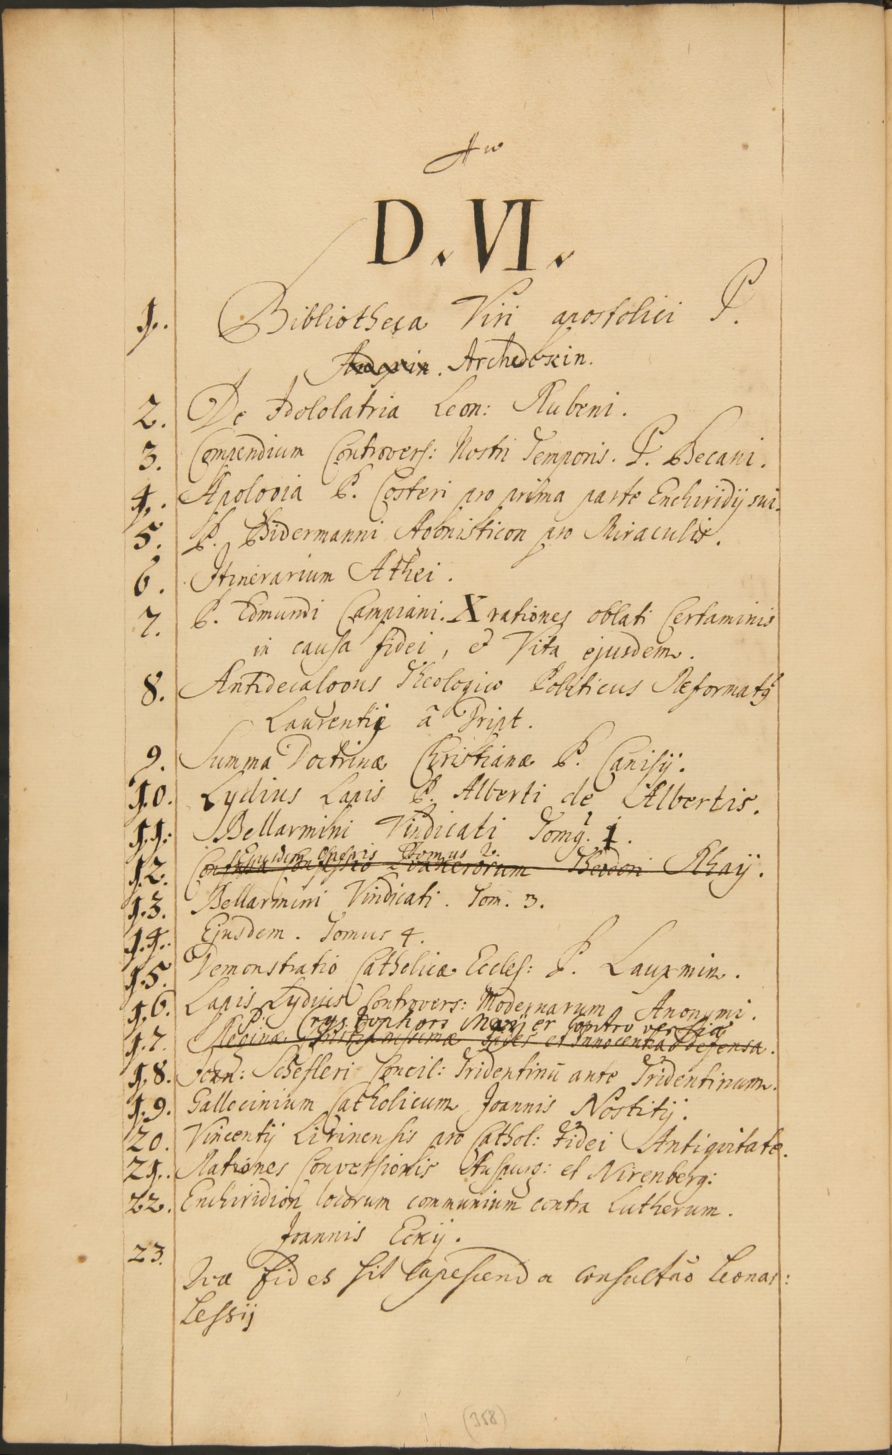 D. VI.
1. Bibliotheca Viri apostolici P.
Archedekin.
2. De Idololatria Leon: Rubeni.
3. Compendium Controvers: Nostri Temporis. P. Becani.
4. Apologia P. Costeri pro prima parte Enchiridij sui.
5. P. Bidermanni Agonisticon pro Miraculis.
6. Itinerarium Athei.
7. P. Edmundi Campiani. X rationes oblati Certaminis
in causa fidei, et Vita ejusdem.
8. Antidecalogus Theologico Politicus Reformatg
Laurentij à Dript.
9. Summa Doctrinæ Christianæ P. Canisij.
10. Lydius Lapis P. Alberti de Albertis.
11. Bellarmini Vindicati Tomg. 1.
Ejusdem Operis Tomus 2.
12. Rhaij.
13. Bellarmini Vindicati. Tom. 3.
14. Ejusdem. Tomus 4.
15. Demonstratio Catholicæ Eccles: P. Laupmin.
16. Lapis Lydius Controvers: Modernarum Anonymi.
P. Controversiæ
17. Christianissimæ et Innocentia Defensa.
18. Schefleri Concil: Tridentinũ ante Tridentinum.
19. Gallicinium Catholicum Joannis Nostitij.
20. Vincentij Lirinensis pro Cathol: Fidei Antiquitate.
21. Rationes Conversionis Auspurg: et Nirenberg:
22. Enchiridion locorum communium contra Lutherum.
Joannis Eckij.
23. Quæ Fides sit Capescenda consultao Leonar:
Lessij
(358)